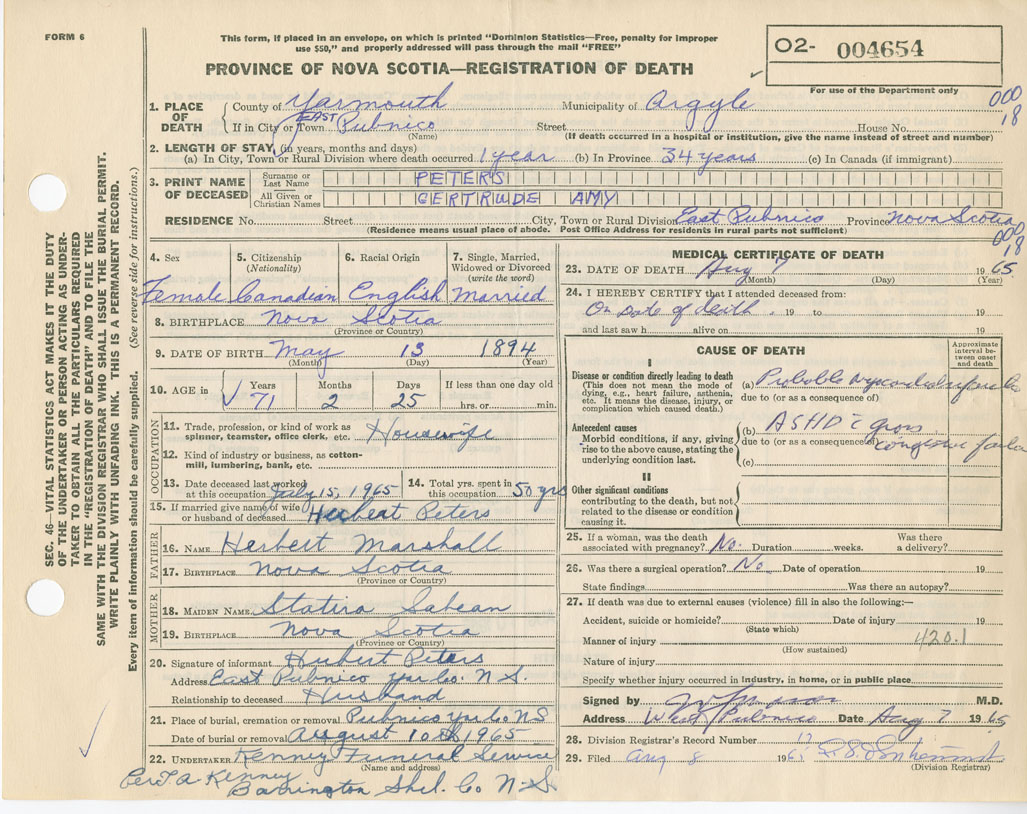 FORM 6
This form, if placed in an envelope, on which is printed "Dominion Statistics—Free, penalty for improper
use $50," and properly addressed will pass through the mail "FREE"
PROVINCE OF NOVA SCOTIA—REGISTRATION OF DEATH
02- 004654
For use of the Department only
000
18
SEC. 46—VITAL STATISTICS ACT MAKES IT THE DUTY
OF THE UNDERTAKER OR PERSON ACTING AS UNDER-
TAKER TO OBTAIN ALL THE PARTICULARS REQUIRED
IN THE "REGISTRATION OF DEATH" AND TO FILE THE
SAME WITH THE DIVISION REGISTRAR WHO SHALL ISSUE THE BURIAL PERMIT.
WRITE PLAINLY WITH UNFADING INK. THIS IS A PERMANENT RECORD.
Every item of information should be carefully supplied. (See reverse side for instructions.)
1. PLACE OF DEATH County of Yarmouth Municipality of Argyle
If in City or Town EAST Pubnico Street House No.
(Name) (If death occurred in a hospital or institution, give the name instead of street and number)
2. LENGTH OF STAY (in years, months and days)
(a) In City, Town or Rural Division where death occurred 1 year (b) In Province 34 years (c) In Canada (if immigrant)
3. PRINT NAME OF DECEASED Surname or Last Name PETERS
All Given or Christian Names GERTRUDE AMY
RESIDENCE No. Street City, Town or Rural Division East Pubnico Province Nova Scotia
(Residence means usual place of abode. Post Office Address for residents in rural parts not sufficient)
000
18
4. Sex 5. Citizenship (Nationality) 6. Racial Origin 7. Single, Married, Widowed or Divorced (write the word)
Female Canadian English Married
8. BIRTHPLACE Nova Scotia
(Province or Country)
9. DATE OF BIRTH May 13 1894
(Month) (Day) (Year)
10. AGE in Years Months Days If less than one day old
71 2 25 hrs. or min.
OCCUPATION
11. Trade, profession, or kind of work as
spinner, teamster, office clerk, etc. Housewife
12. Kind of industry or business, as cotton-
mill, lumbering, bank, etc.
13. Date deceased last worked at this occupation July 15, 1965 14. Total yrs. spent in this occupation 50 yrs
15. If married give name of wife
or husband of deceased Herbert Peters
FATHER
16. NAME Herbert Marshall
17. BIRTHPLACE Nova Scotia
(Province or Country)
MOTHER
18. MAIDEN NAME Statira Sabean
19. BIRTHPLACE Nova Scotia
(Province or Country)
20. Signature of informant Herbert Peters
Address East Pubnico Yar Co. N S.
Relationship to deceased Husband
21. Place of burial, cremation or removal Pubnico Yar Co NS
Date of burial or removal August 10th 1965
22. UNDERTAKER Kenney Funeral Service
(Name and address)
A. Kenney
Barrington Shel. Co N-S.
MEDICAL CERTIFICATE OF DEATH
23. DATE OF DEATH Aug 7 1965
(Month) (Day) (Year)
24. I HEREBY CERTIFY that I attended deceased from:
On date of death. 19 to 19
and last saw h alive on 19
CAUSE OF DEATH
Approximate interval between onset and death
I
Disease or condition directly leading to death
(This does not mean the mode of
dying, e.g., heart failure, asthenia,
etc. It means the disease, injury, or
complication which caused death.)
(a) Probable myocardial
due to (or as a consequence of)
Antecedent causes
Morbid conditions, if any, giving
rise to the above cause, stating the
underlying condition last.
(b) ASHD c gross
due to (or as a consequence of) congestive failure
(c)
II
Other significant conditions
contributing to the death, but not
related to the disease or condition
causing it.
25. If a woman, was the death
associated with pregnancy? No. Duration weeks. Was there a delivery?
26. Was there a surgical operation? No. Date of operation 19
State findings Was there an autopsy?
27. If death was due to external causes (violence) fill in also the following:—
Accident, suicide or homicide? Date of injury 19
(State which)
Manner of injury 420.1
(How sustained)
Nature of injury
Specify whether injury occurred in industry, in home, or in public place
Signed by M.D.
Address West Pubnico Date Aug 7 1965
28. Division Registrar's Record Number 17
29. Filed Aug 8 196
(Division Registrar)